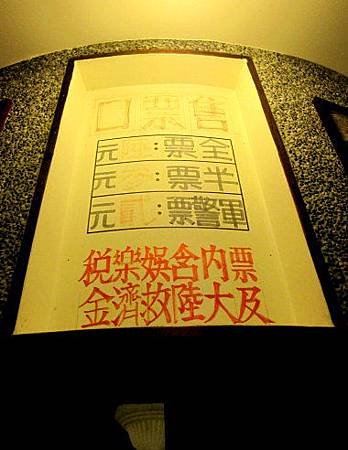 售票口
全票：肆元
半票：參元
軍警票：貳元
票內含娛樂稅
及大陸救濟金